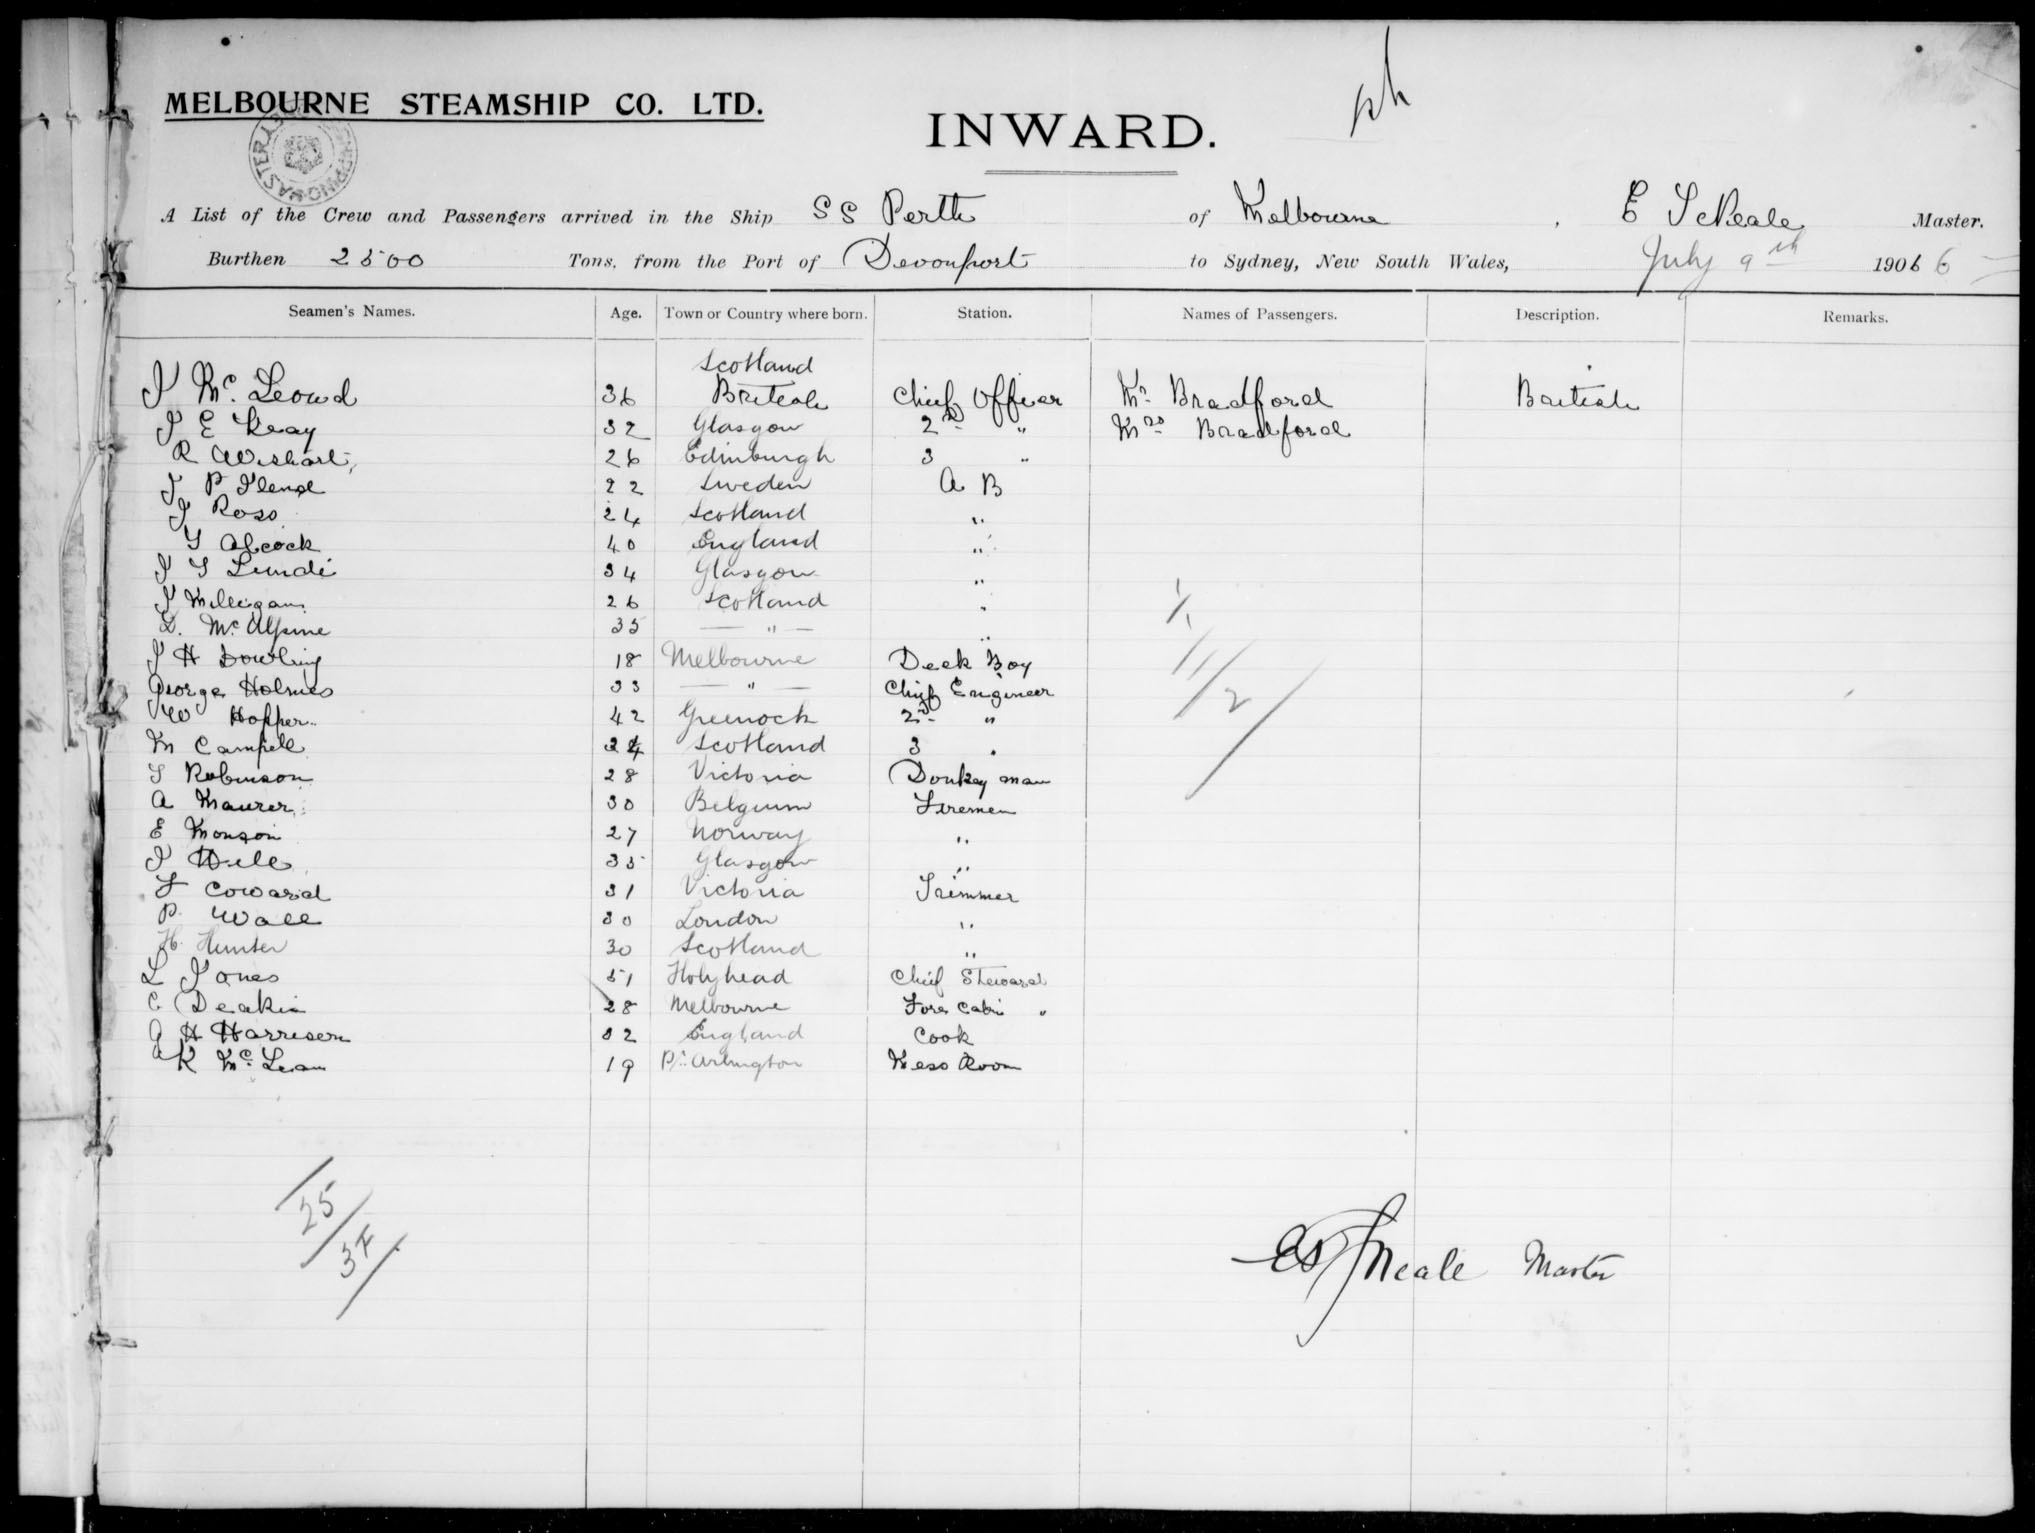 MELBOURNE STEAMSHIP CO. LTD.
INWARD.
A List of the Crew and Passengers arrived in the Ship SS Perth of Melbourne, E S Neale Master.
Burthen 2500 Tons, from the Port of Devonport to Sydney, New South Wales, July 9th 1906 6
Seamen's Names. Age. Town or Country where born. Station. Names of Passengers. Description. Remarks.
Scotland
J Mc Leowd 36 British Chief Officer Mr Bradford British
J E Keay 32 Glasgow 2nd " Mrs Bradford
R Wishart 26 Edinburgh 3 "
J P 22 Sweden A B
J Ross 24 Scotland "
T Alcock 40 England "
J S Lundi 34 Glasgow "
J Milligan 26 Scotland "
D. Mc Alpine 35 — " — "
J H Dowling 18 Melbourne Deck Boy
George Holmes 33 — " — Chief Engineer
W Hopper 42 Greenock 2nd "
M Campell 24 Scotland 3 "
S Robinson 28 Victoria Donkey man
A Maurer 30 Belgium Firemen
E Monson 27 Norway "
J 35 Glasgow "
F Coward 31 Victoria Trimmer
P. Wall 30 London "
H. Hunter 30 Scotland "
L Jones 51 Holyhead Chief Steward
C. Deakin 28 Melbourne Fore Cabin "
A H Harrison 32 England Cook
K Mc Lean 19 Pt Arlington Mess Room
1/1
11/2
25/
37/
E S Neale Master